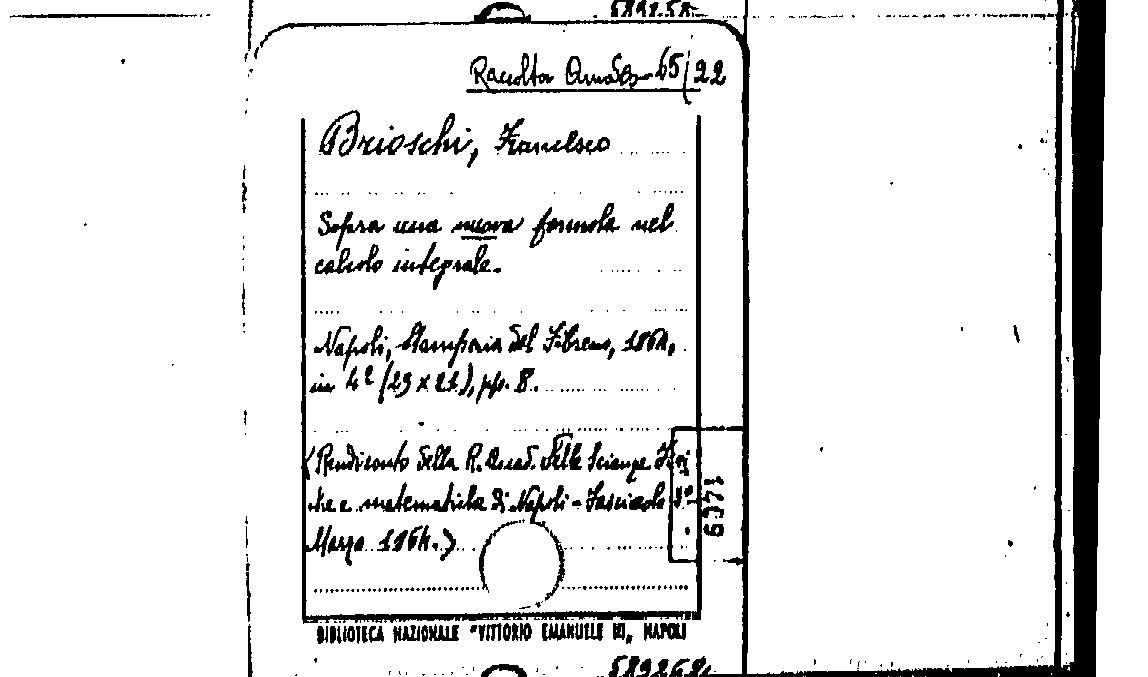 Raccolta Amodeo 65/22
Brioschi, Francesco
Sopra una nuova formola nel
calcolo integrale.
Napoli, Stamperia del Fibreno, 1864,
in 4º (29 x 21), pp. 8.
(Rendiconto della R. Accad. delle Scienze Fisi
che e matematiche di Napoli - Fascicolo 3º -
Marzo 1864.)
BIBLIOTECA NAZIONALE "VITTORIO EMANUELE III„ NAPOLI